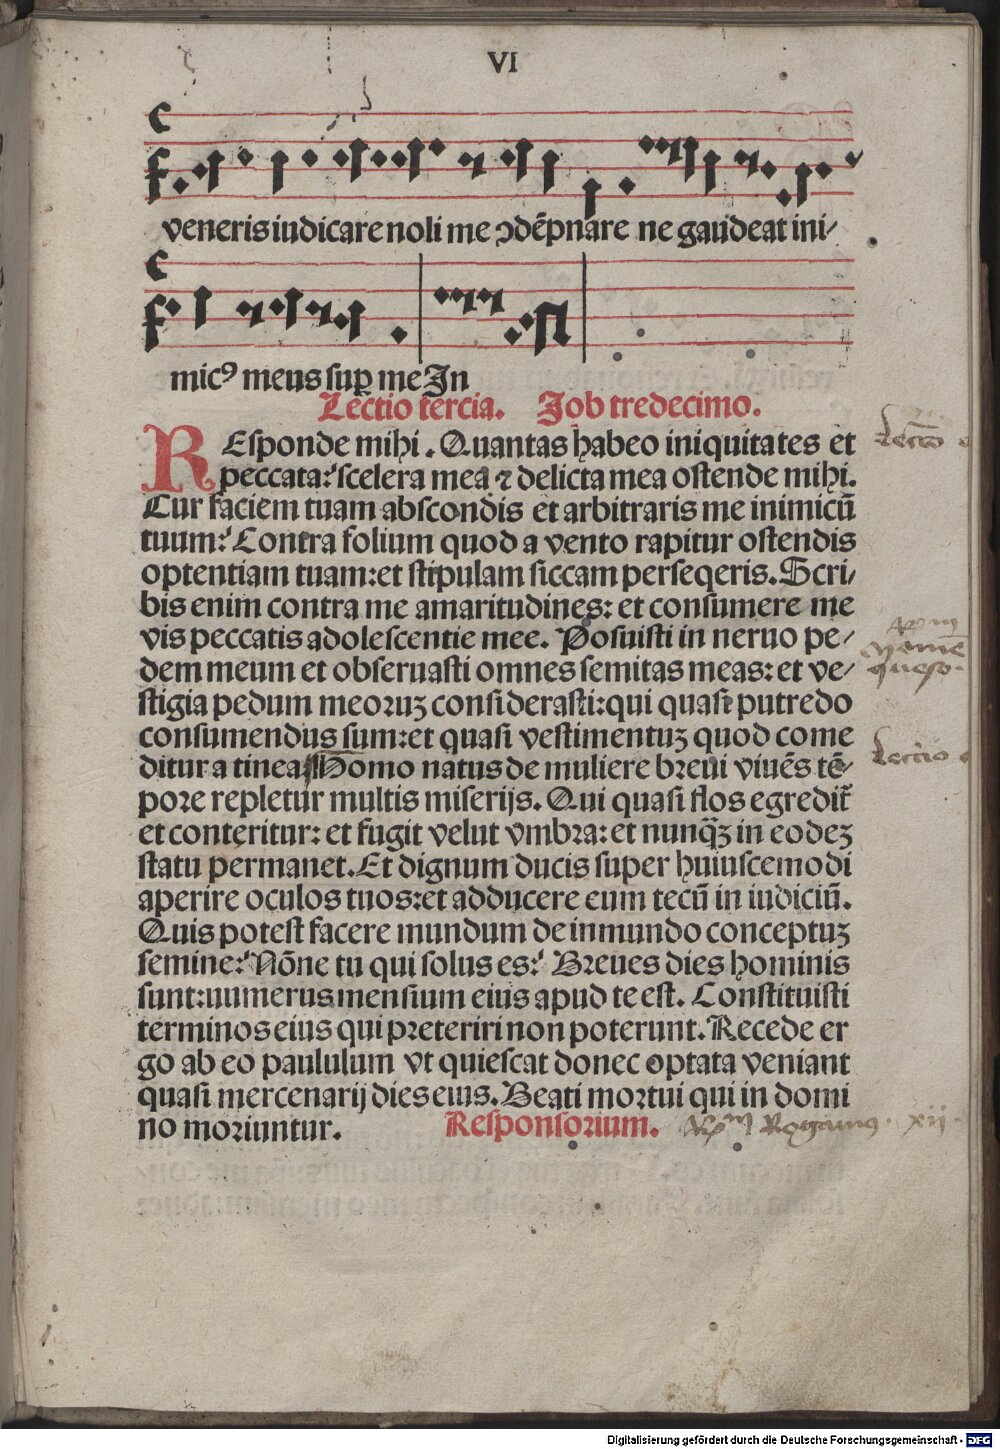 VI
veneris iudicare noli me ↄdēpnare ne gaudeat ini⸗
micꝰ meus suꝑ me In
Lectio tercia. Job tredecimo.
REsponde mihi. Quantas habeo iniquitates et
peccata: scelera mea ⁊ delicta mea ostende mihi.
Cur faciem tuam abscondis et arbitraris me inimicū
tuum: Contra folium quod a vento rapitur ostendis
optentiam tuam: et stipulam siccam perseqeris. Scri⸗
bis enim contra me amaritudines: et consumere me
vis peccatis adolescentie mee. Posuisti in neruo pe⸗
dem meum et obseruasti omnes semitas meas: et ve⸗
stigia pedum meoruꝫ considerasti: qui quasi putredo
consumendus sum: et quasi vestimentuꝫ quod come
ditur a tinea Homo natus de muliere breui viuēs tē⸗
pore repletur multis miserijs. Qui quasi flos egredit᷑
et conteritur: et fugit velut vmbra: et nunq̄ꝫ in eodeꝫ
statu permanet. Et dignum ducis super huiuscemodi
aperire oculos tuos: et adducere eum tecū in iudiciū.
Quis potest facere mundum de inmundo conceptuꝫ
semine: Nōne tu qui solus es: Breues dies hominis
sunt: uumerus mensium eius apud te est. Constituisti
terminos eius qui preteriri non poterunt. Recede er
go ab eo paululum vt quiescat donec optata veniant
quasi mercenarij dies eius. Beati mortui qui in domi
no moriuntur. Responsorium. Rogamus. xij
Lectio
queso.
Lectio
Digitalisierung gefördert durch die Deutsche Forschungsgemeinschaft - DFG